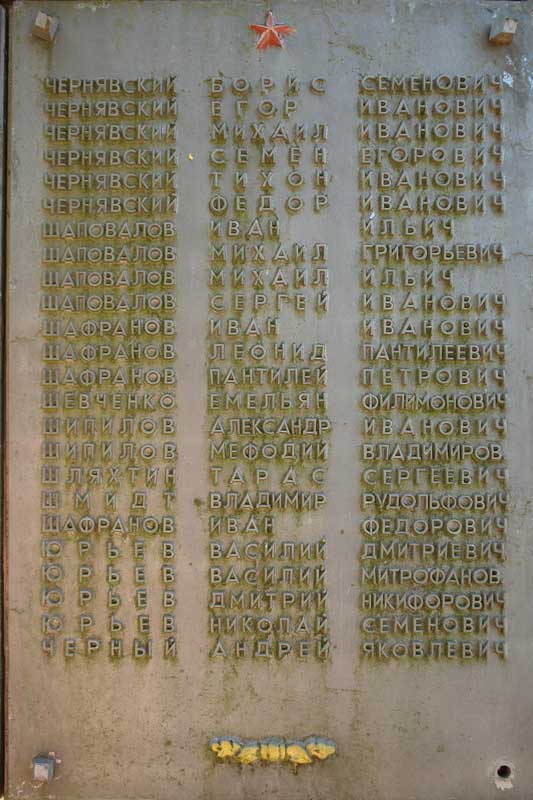 ЧЕРНЯВСКИЙ БОРИС СЕМЕНОВИЧ
ЧЕРНЯВСКИЙ ЕГОР ИВАНОВИЧ
ЧЕРНЯВСКИЙ МИХАИЛ ИВАНОВИЧ
ЧЕРНЯВСКИЙ СЕМЁН ЕГОРОВИЧ
ЧЕРНЯВСКИЙ ТИХОН ИВАНОВИЧ
ЧЕРНЯВСКИЙ ФЕДОР ИВАНОВИЧ
ШАПОВАЛОВ ИВАН ИЛЬИЧ
ШАПОВАЛОВ МИХАИЛ ГРИГОРЬЕВИЧ
ШАПОВАЛОВ МИХАИЛ ИЛЬИЧ
ШАПОВАЛОВ СЕРГЕЙ ИВАНОВИЧ
ШАФРАНОВ ИВАН ИВАНОВИЧ
ШАФРАНОВ ЛЕОНИД ПАНТИЛЕЕВИЧ
ШАФРАНОВ ПАНТИЛЕЙ ПЕТРОВИЧ
ШЕВЧЕНКО ЕМЕЛЬЯН ФИЛИМОНОВИЧ
ШИПИЛОВ АЛЕКСАНДР ИВАНОВИЧ
ШИПИЛОВ МЕФОДИЙ ВЛАДИМИРОВ.
ШЛЯХТИН ТАРАС СЕРГЕЕВИЧ
ШМИДТ ВЛАДИМИР РУДОЛЬФОВИЧ
ШАФРАНОВ ИВАН ФЕДОРОВИЧ
ЮРЬЕВ ВАСИЛИЙ ДМИТРИЕВИЧ
ЮРЬЕВ ВАСИЛИЙ МИТРОФАНОВ.
ЮРЬЕВ ДМИТРИЙ НИКИФОРОВИЧ
ЮРЬЕВ НИКОЛАЙ СЕМЕНОВИЧ
ЧЕРНЫЙ АНДРЕЙ ЯКОВЛЕВИЧ